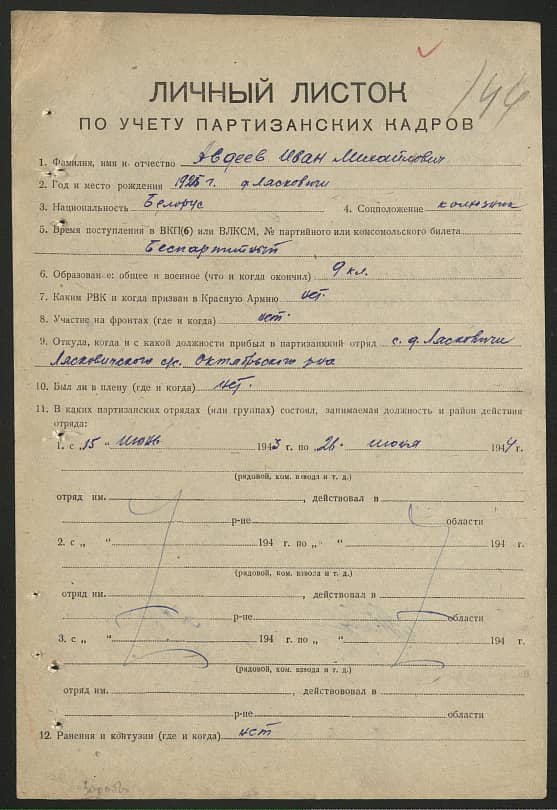 144
ЛИЧНЫЙ ЛИСТОК
ПО УЧЕТУ ПАРТИЗАНСКИХ КАДРОВ
1. Фамилия, имя и отчество Авдеев Иван Михайлович
2. Год и место рождения 1925 г. д. Лясковичи
3. Национальность Белорус 4. Соцположение колхозник
5. Время поступления в ВКП(б) или ВЛКСМ, № партийного или комсомольского билета
Беспартийный
6. Образование: общее и военное (что и когда окончил) 9 кл.
7. Каким РВК и когда призван в Красную Армию нет.
8. Участие на фронтах (где и когда) нет.
9. Откуда, когда и с какой должности прибыл в партизанский отряд с. д. Лясковичи
Лясковичского с/с. Октябрьского р-на
10. Был ли в плену (где и когда) нет.
11. В каких партизанских отрядах (или группах) состоял, занимаемая должность и район действия
отряда:
1. с „15 “ июнь 1943 г. по „26. “ июня 1944 г.
(рядовой, ком. взвода и т. д.)
отряд им. , действовал в
р-не области
2. с „ “ 194 г. по „ “ 194 г.
(рядовой, ком. взвода и т. д.)
отряд им. , действовал в
р-не области
3. с „ “ 194 г. по „ “ 194 г.
(рядовой, ком. взвода и т. д.)
отряд им. , действововал в
р-не области
12. Ранения и контузии (где и когда) нет